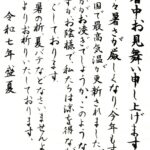 暑中お見舞い申し上げます
々暑さが厳しくなり今年
国で最高気温が更新されました
でしょうか
がお陰様で私たちは涼を得な
ごしております
暑の折夏バテなどなさいませんよ
よりお祈りいたしております
令和七年 盛夏